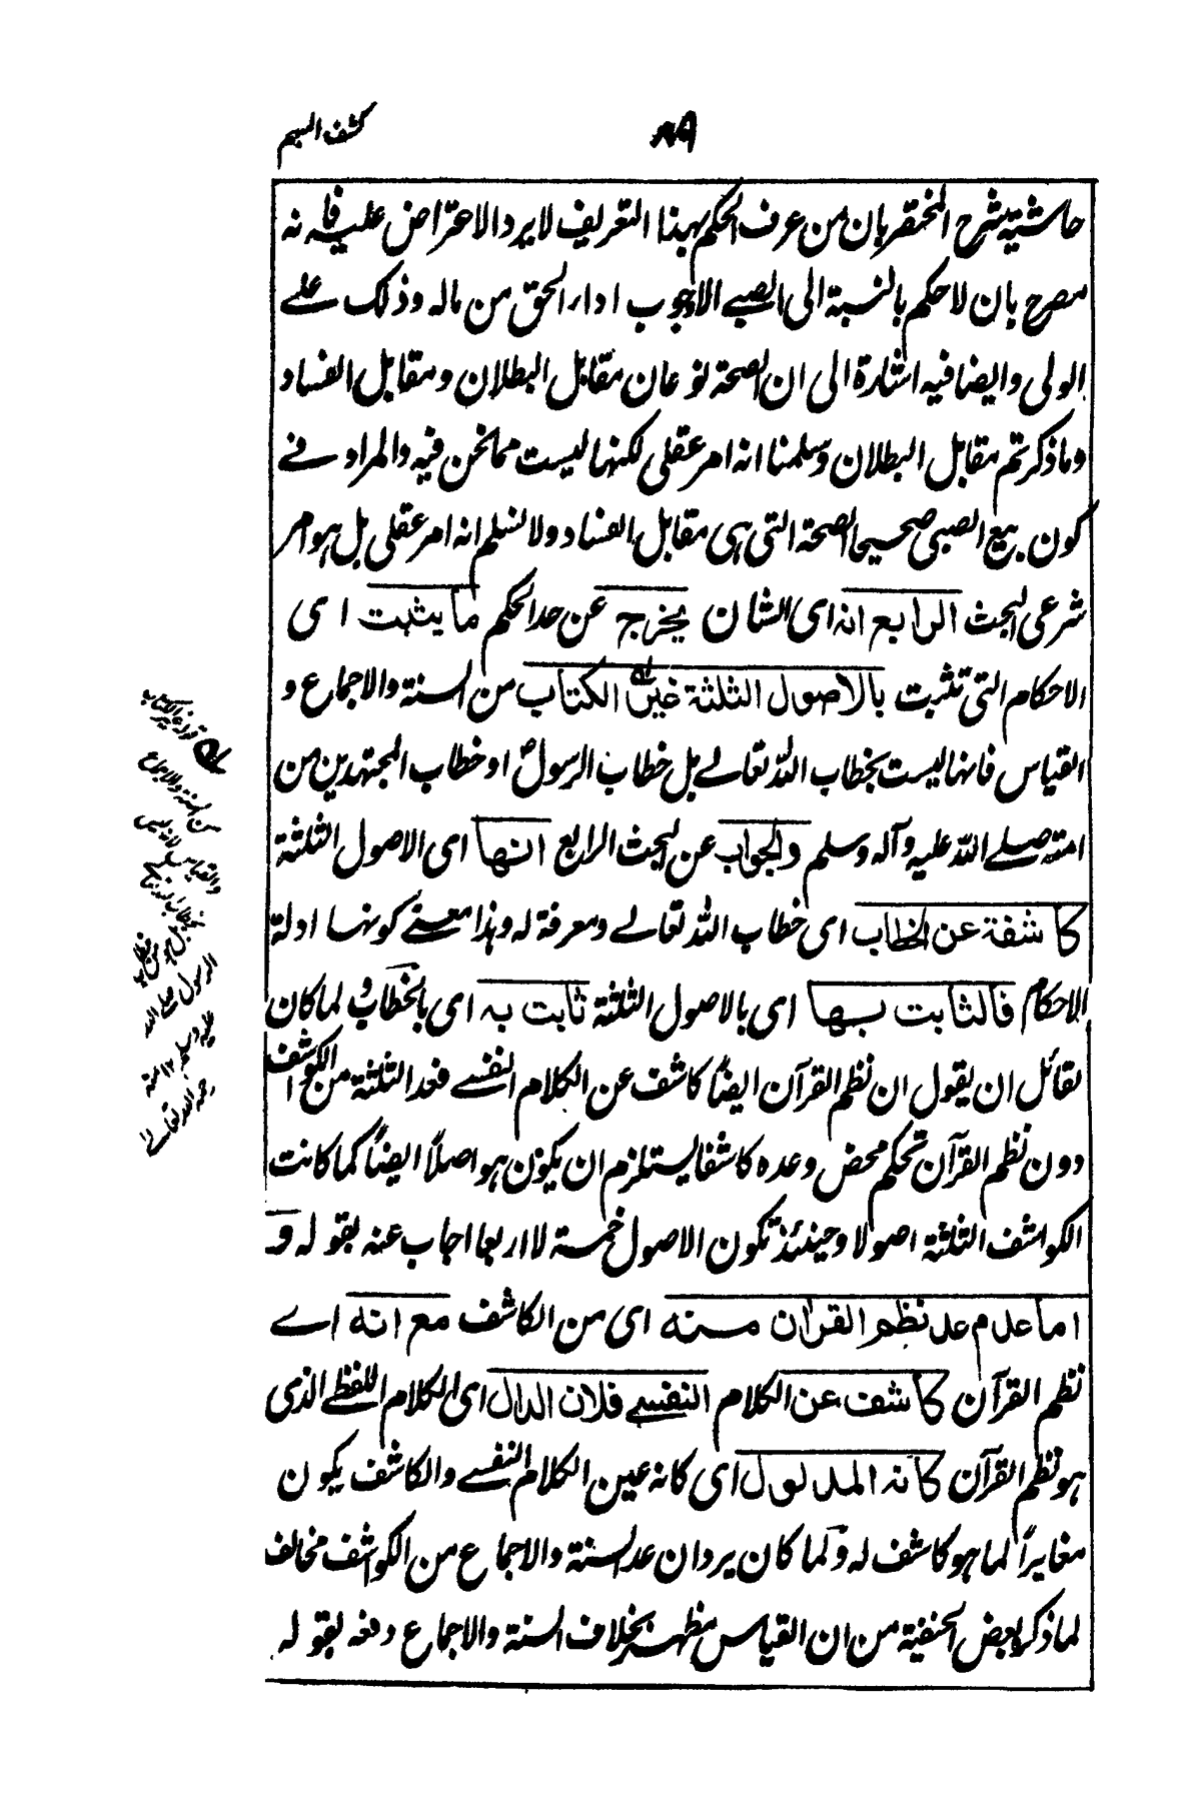 كشف المبهم
٨٩
حاشية شرح المختصر بان من عرف الحكم بهذا التعريف لا يرد الاعتراض عليه فانه
مصرح بان لا حكم بالنسبة الى الصبے الا وجوب اداء الحق من ماله وذلك علے
الولى وايضا فيه اشارة الى ان الصحة نوعان مقابل البطلان ومقابل الفساد
وما ذكرتم مقابل البطلان وسلمنا انه امر عقلى لكنها ليست مما نحن فيه والمراد فے
كون بيع الصبى صحيحا الصحة التى هى مقابل الفساد ولا نسلم انه امر عقلى بل هو امر
شرعى البحث الرابع انه اى الشان يخرج عن حد الحكم ما يثبت اى
الاحكام التى تثبت بالاصول الثلثة غير الكتاب من السنة والاجماع و
القياس فانها ليست بخطاب الله تعالے بل خطاب الرسول او خطاب المجتهدين من
امته صلے الله عليه وآله وسلم والجواب عن البحث الرابع انها اى الاصول الثلثة
كاشفة عن الخطاب اى خطاب الله تعالے ومعرفة له وهذا معنے كونها ادلة
الاحكام فالثابت بها اى بالاصول الثلثة ثابت به اى بالخطاب و لما كان
لقائل ان يقول ان نظم القرآن ايضاً كاشف عن الكلام النفسے فعد الثلثة من الكواشف
دون نظم القرآن تحكم محض وعده كاشفا يستلزم ان يكون هو اصلاً ايضاً كما كانت
الكواشف الثلثة اصولا وحينئذ تكون الاصول خمسة لا اربعا اجاب عنه بقوله و
اما عدم عد نظم القرآن منه اى من الكاشف مع انه اے
نظم القرآن كاشف عن الكلام النفسے فلان الدال اى الكلام اللفظے الذى
هو نظم القرآن كانه المدلول اى كانه عين الكلام النفسے والكاشف يكون
مغايراً لما هو كاشف له و لما كان يرد ان عد السنة والاجماع من الكواشف مخالف
لما ذكر بعض الحنفية من ان القياس مظهر بخلاف السنة والاجماع دفعه بقوله
قوله غير الكتاب
من السنة والاجماع
والقياس
بخطاب الله
الرسول صلے الله
عليه وسلم ١٢ منه
رحمه الله تعالےٰ